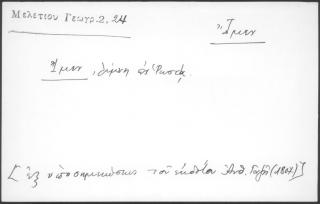 Μελετίου Γεωγρ. 2, 24
Ἴμεν
Ἴμεν, λίμνη ἐν Ῥωσίᾳ.
[ἐξ ὑποσημειώσεως τοῦ ἐκδότου Ἀνθ. Γαζῆ (1807)]